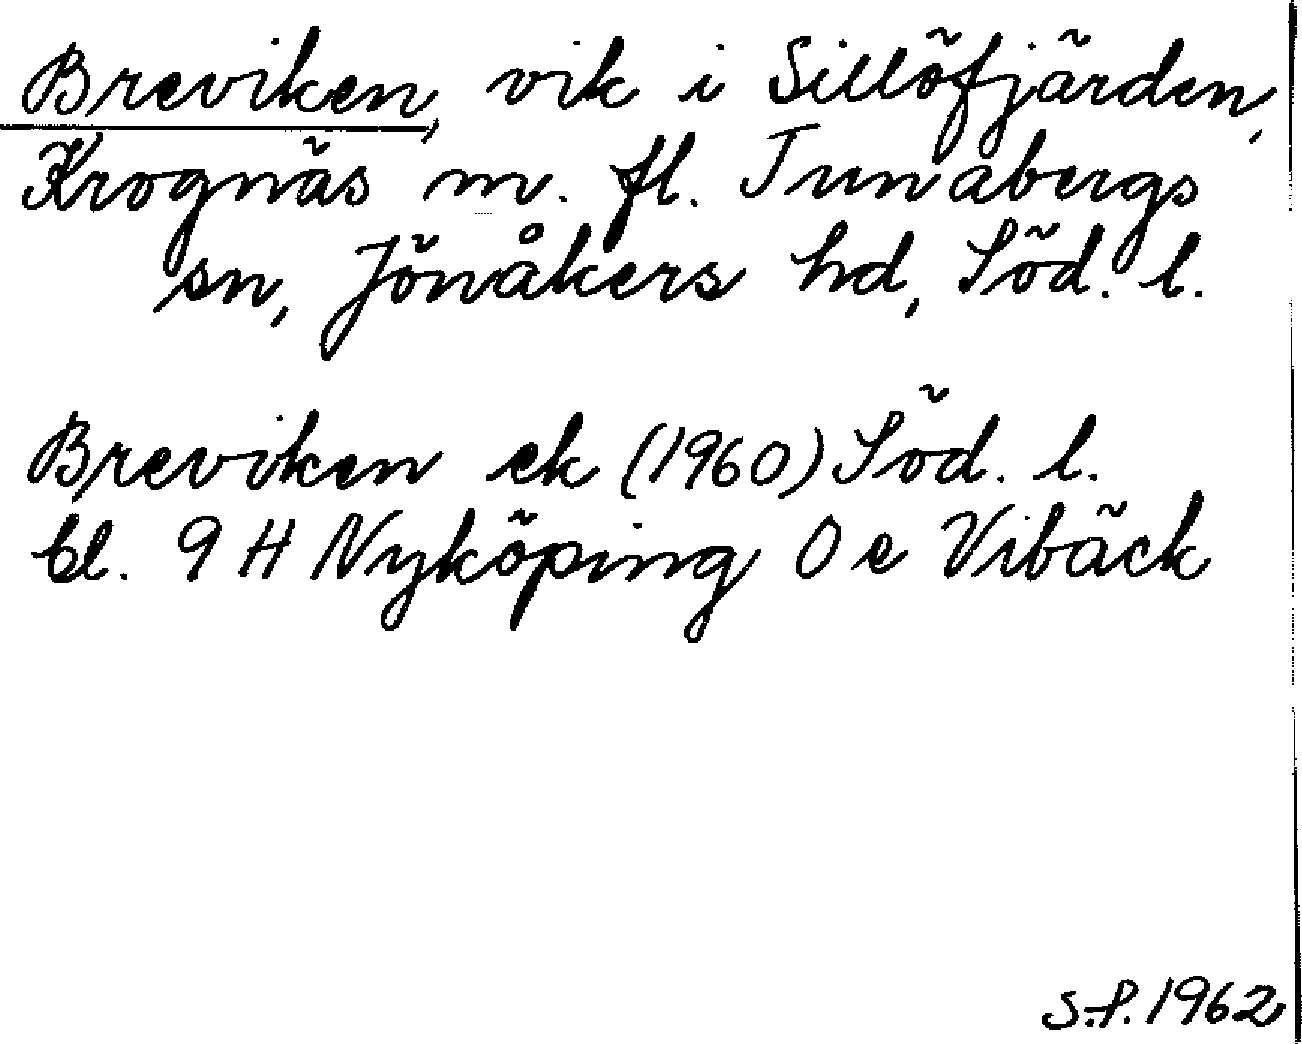 Breviken, vik i Sillöfjärden,
Krognäs m. fl. Tunabergs
sn, Jönåkers hd, Söd. l.
Breviken ek (1960) Söd. l.
bl. 9 H Nyköping 0 e Vibäck
S.P. 1962